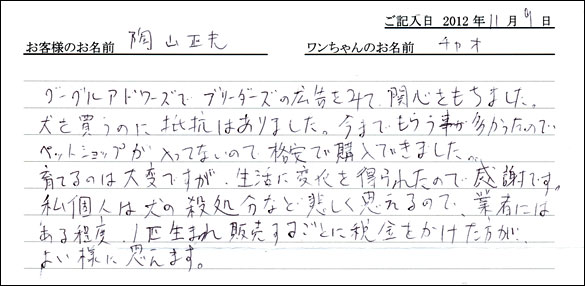 ご記入日 2012 年 11 月 9 日
お客様のお名前 陶山正夫 ワンちゃんのお名前 チャオ
グーグルアドワーズで ブリーダーズの広告をみて、関心をもちました。
犬を買うのに 抵抗はありました。今までもらう事が多かったので
ペットショップが入ってないので格安で購入できました。
育てるのは大変ですが、生活に変化を得られたので感謝です。
私個人は犬の殺処分など悲しく思えるので、業者には
ある程度、1匹生まれ販売するごとに税金をかけた方が
よい様に思えます。